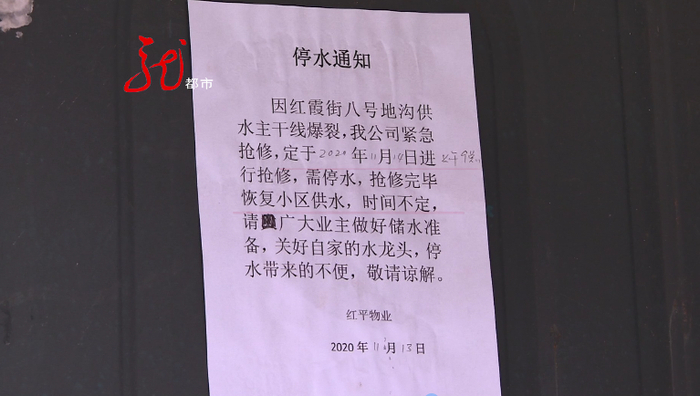 停水通知
龙
都市
因红霞街八号地沟供
水主干线爆裂，我公司紧急
抢修，定于2020年11月14日进
行抢修，需停水，抢修完毕
恢复小区供水，时间不定，
请广大业主做好储水准
备，关好自家的水龙头，停
水带来的不便，敬请谅解。
红平物业
2020年11月13日